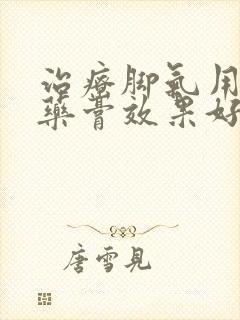 治療脚氣用
藥膏效果好
唐雪見